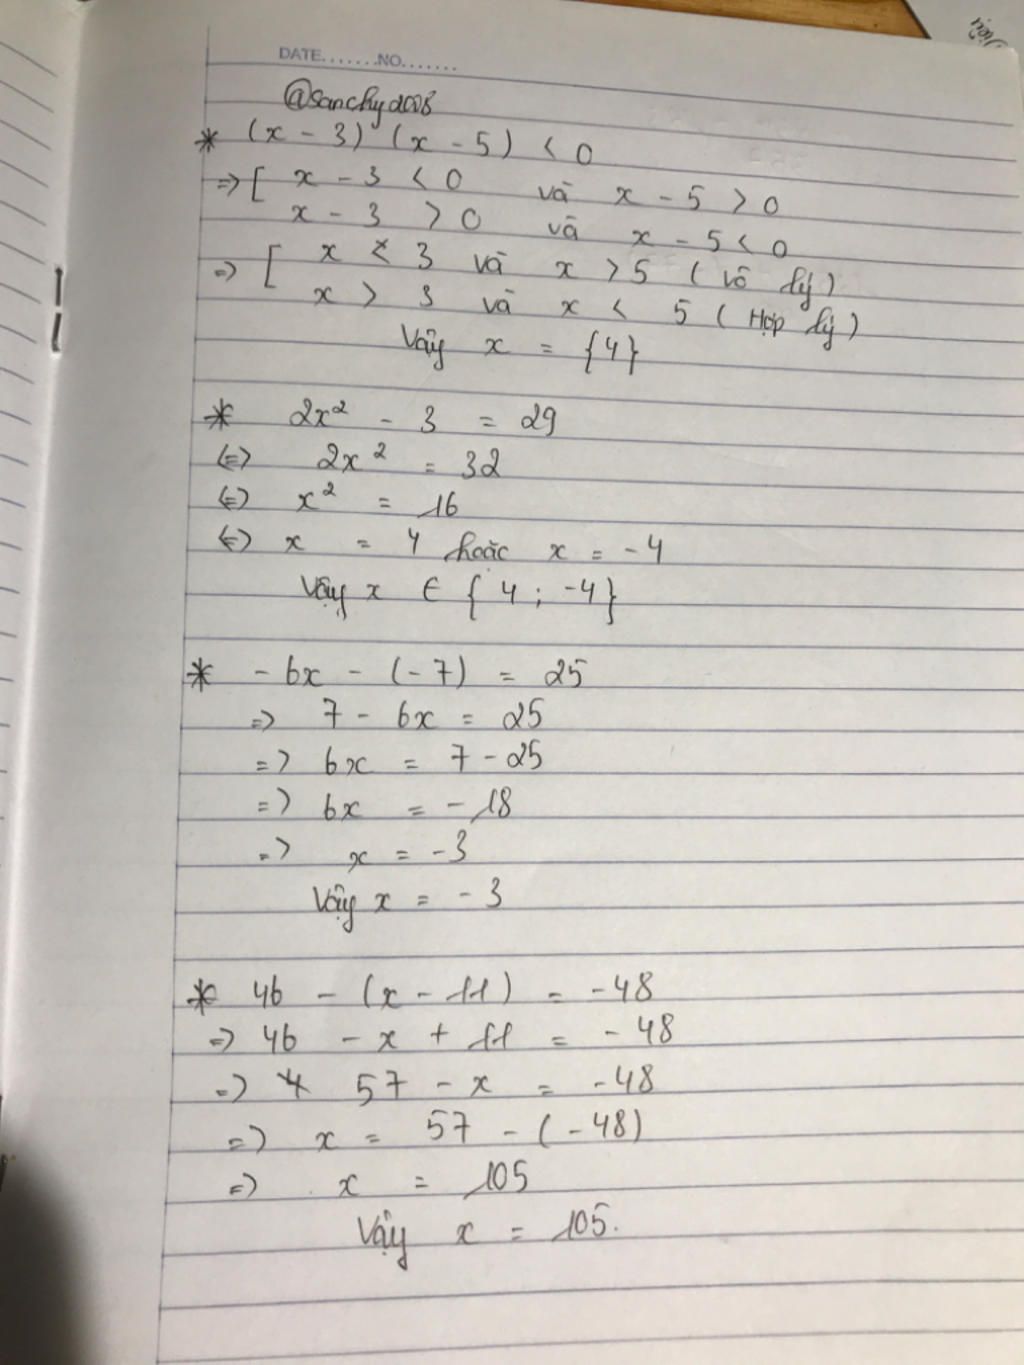 DATE.......NO.......
@sanchyd008
* (x - 3) (x - 5) < 0
=> [ x - 3 < 0 và x - 5 > 0
x - 3 > 0 và x - 5 < 0
=> [ x < 3 và x > 5 ( vô lý )
x > 3 và x < 5 ( Hợp lý )
Vậy x = {4}
* 2x² - 3 = 29
<=> 2x² = 32
<=> x² = 16
<=> x = 4 hoặc x = -4
Vậy x ∈ { 4 ; -4}
* - 6x - (-7) = 25
=> 7 - 6x = 25
=> 6x = 7 - 25
=> 6x = - 18
=> x = -3
Vậy x = - 3
* 46 - (x - 11) = -48
=> 46 - x + 11 = - 48
=> 57 - x = -48
=> x = 57 - (-48)
=> x = 105
Vậy x = 105.